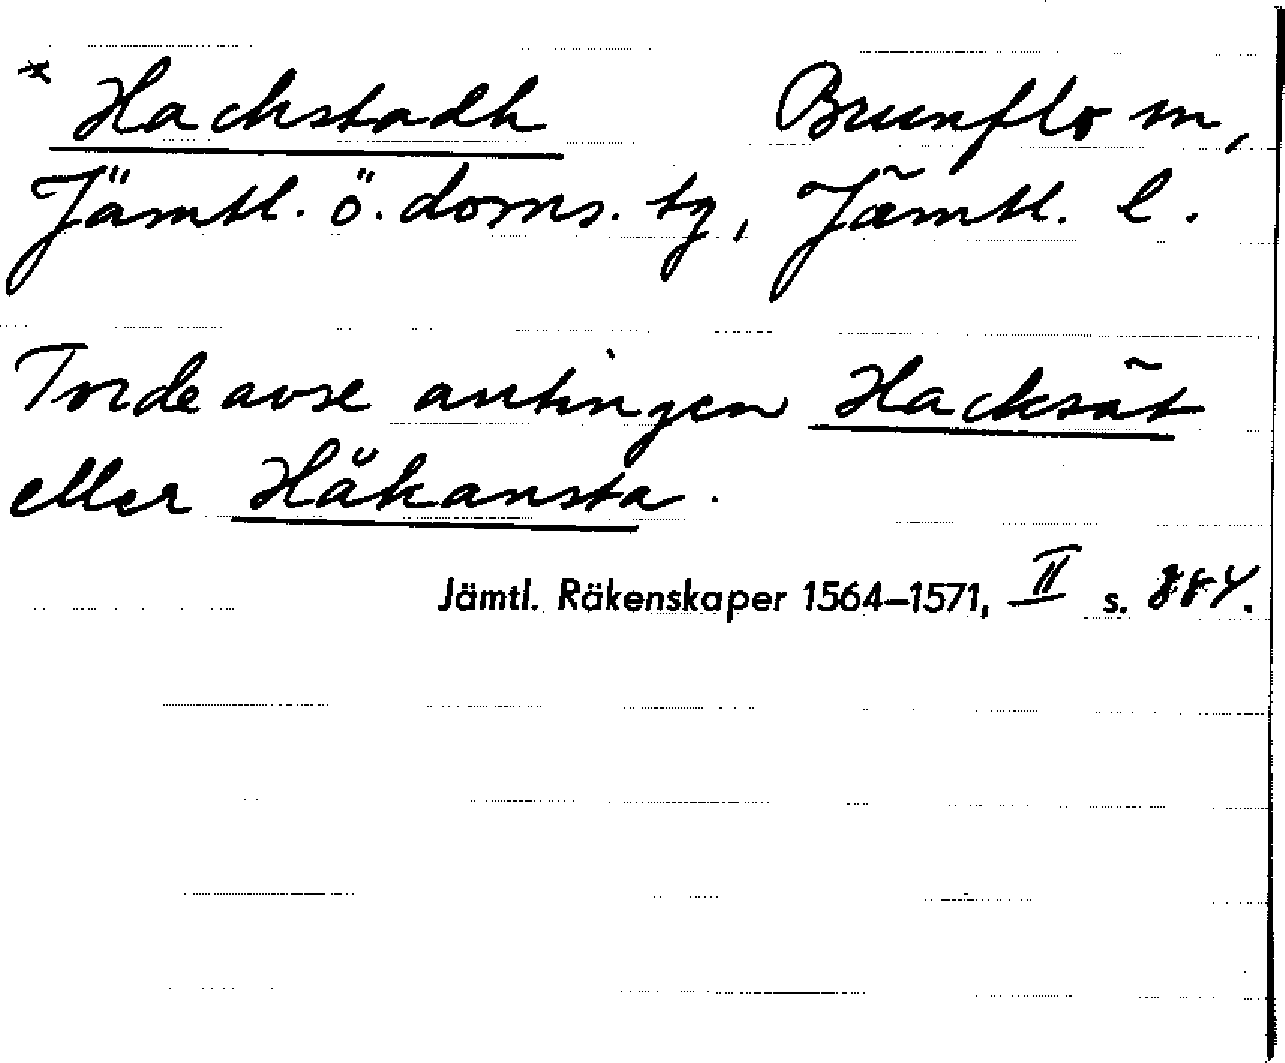 * Hackstadh Brunflo sn,
Jämtl. ö. doms. tg, Jämtl. l.
Torde avse antingen Hacksät
eller Håkansta.
Jämtl. Räkenskaper 1564–1571, II s.